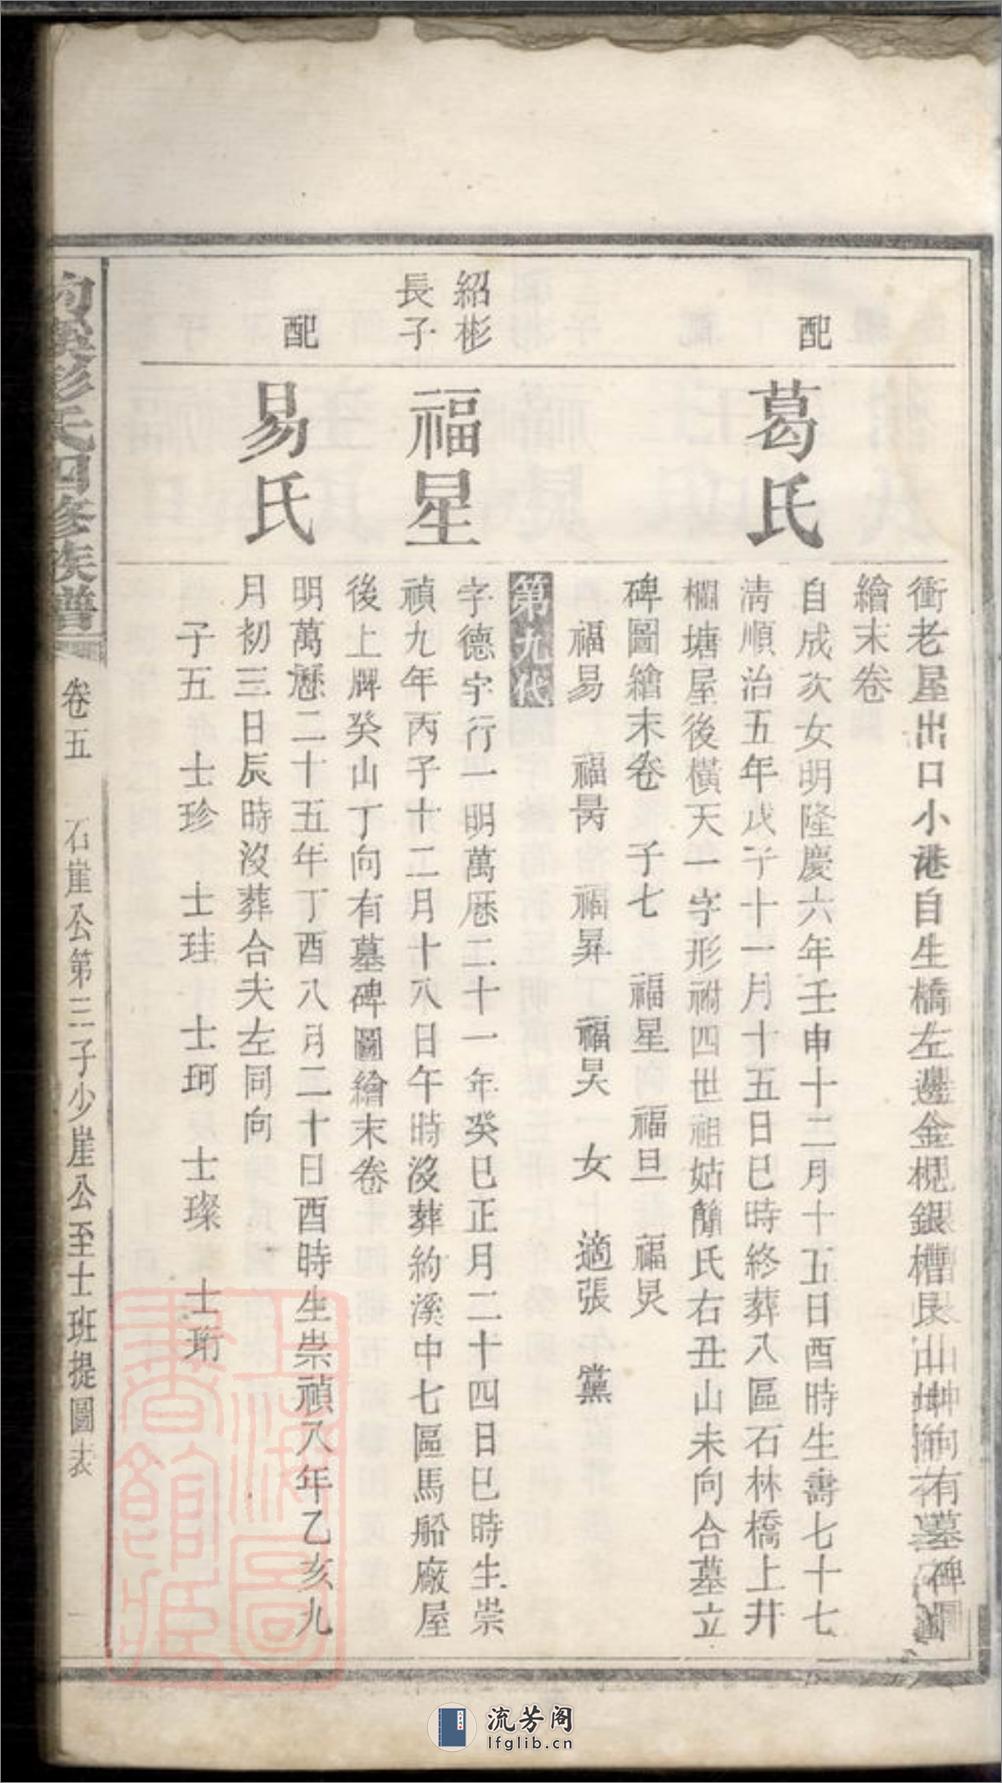 衝老屋出口小港自生橋左邊金梘銀槽艮山坤向有墓碑圖
繪末卷
配
葛氏
自成次女明隆慶六年壬申十二月十五日酉時生壽七十七
清順治五年戊子十一月十五日巳時終葬八區石林橋上井
欄塘屋後橫天一字形祔四世祖姑簡氏右丑山未向合墓立
碑圖繪末卷 子七 福星 福旦 福炅
福易 福昺 福昇 福昊 一女 適張黨
第九代
紹彬
長子
福星
字德宇行一明萬厯二十一年癸巳正月二十四日巳時生崇
禎九年丙子十二月十八日午時沒葬約溪中七區馬船廠屋
後上牌癸山丁向有墓碑圖繪末卷
配
易氏
明萬歷二十五年丁酉八月二十日酉時生崇禎八年乙亥九
月初三日辰時沒葬合夫左同向
子五 士珍 士珪 士珂 士璨 士珩
約溪彭氏四修族譜
卷五
石崖公第三子少崖公至士班提圖表
一
上海圖書館藏
流芳阁
lfglib.cn